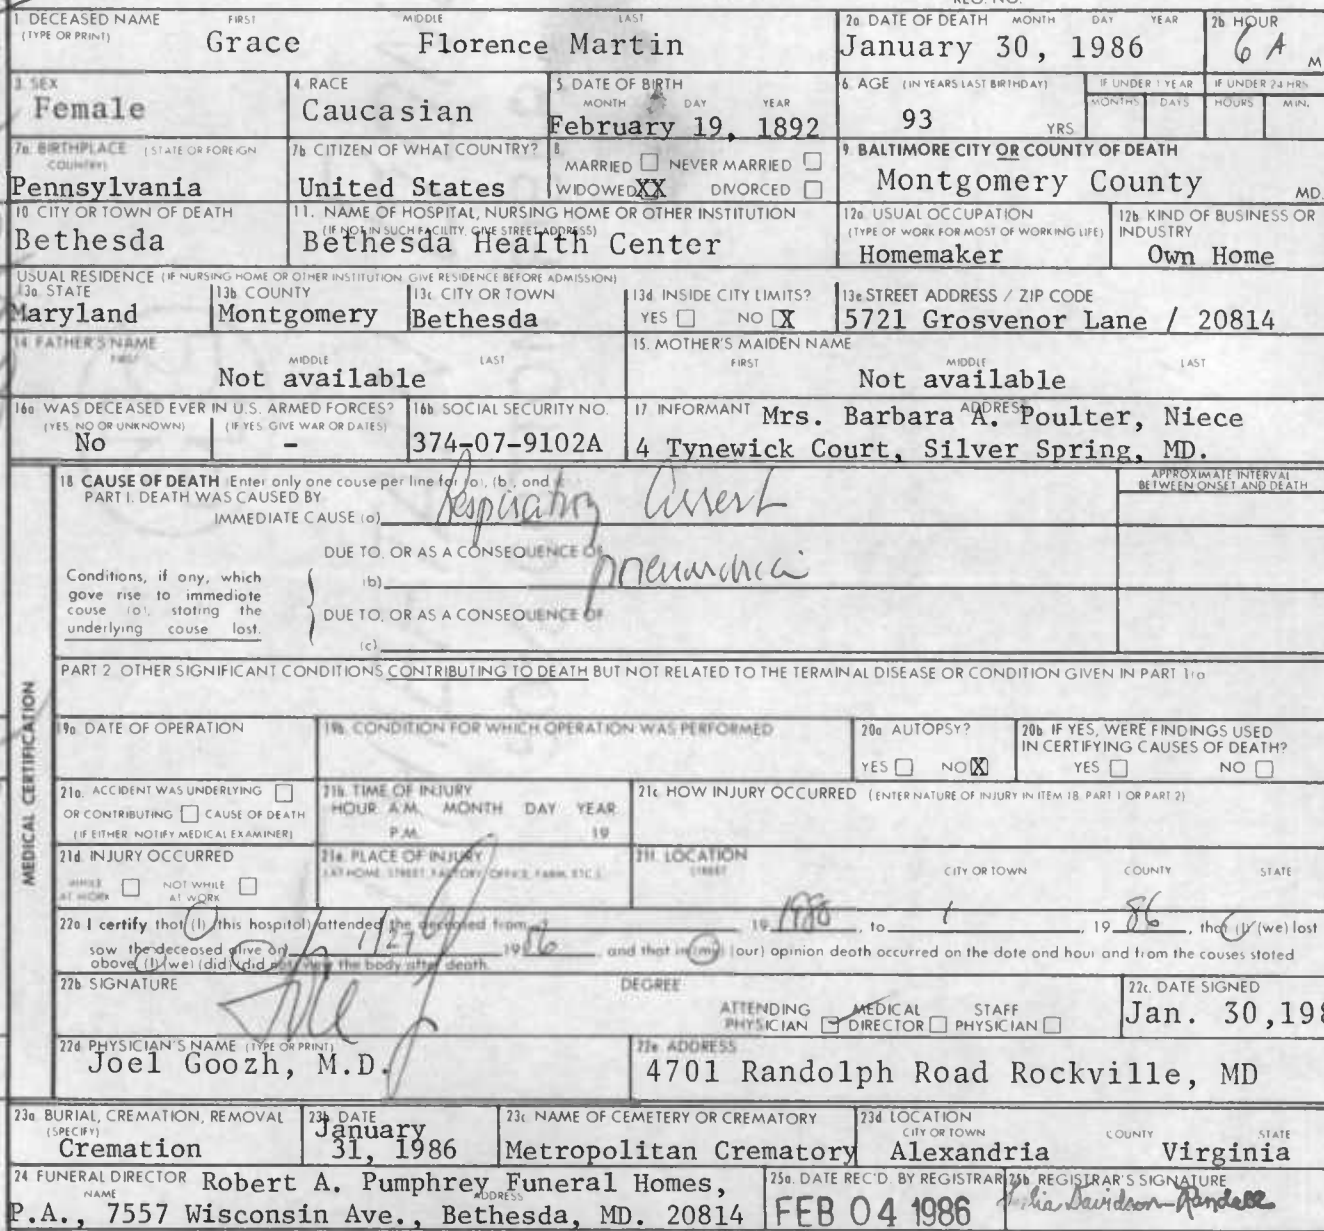 1 DECEASED NAME FIRST MIDDLE LAST
(TYPE OR PRINT)
Grace Florence Martin
2a DATE OF DEATH MONTH DAY YEAR
January 30, 1986
2b HOUR
6 A M
3 SEX
Female
4 RACE
Caucasian
5 DATE OF BIRTH
MONTH DAY YEAR
February 19, 1892
6 AGE (IN YEARS LAST BIRTHDAY)
93 YRS
IF UNDER 1 YEAR
MONTHS DAYS
IF UNDER 24 HRS
HOURS MIN.
7a BIRTHPLACE (STATE OR FOREIGN
COUNTRY)
Pennsylvania
7b CITIZEN OF WHAT COUNTRY?
United States
8
MARRIED NEVER MARRIED
WIDOWED XX DIVORCED
9 BALTIMORE CITY OR COUNTY OF DEATH
Montgomery County MD.
10 CITY OR TOWN OF DEATH
Bethesda
11. NAME OF HOSPITAL, NURSING HOME OR OTHER INSTITUTION
(IF NOT IN SUCH FACILITY, GIVE STREET ADDRESS)
Bethesda Health Center
12a USUAL OCCUPATION
(TYPE OF WORK FOR MOST OF WORKING LIFE)
Homemaker
12b KIND OF BUSINESS OR
INDUSTRY
Own Home
USUAL RESIDENCE (IF NURSING HOME OR OTHER INSTITUTION GIVE RESIDENCE BEFORE ADMISSION)
13a STATE
Maryland
13b COUNTY
Montgomery
13c CITY OR TOWN
Bethesda
13d INSIDE CITY LIMITS?
YES NO X
13e STREET ADDRESS / ZIP CODE
5721 Grosvenor Lane / 20814
14 FATHER'S NAME
FIRST MIDDLE LAST
Not available
15. MOTHER'S MAIDEN NAME
FIRST MIDDLE LAST
Not available
16a WAS DECEASED EVER IN U.S. ARMED FORCES?
(YES, NO OR UNKNOWN) (IF YES, GIVE WAR OR DATES)
No -
16b SOCIAL SECURITY NO.
374-07-9102A
17 INFORMANT ADDRESS
Mrs. Barbara A. Poulter, Niece
4 Tynewick Court, Silver Spring, MD.
MEDICAL CERTIFICATION
18 CAUSE OF DEATH (Enter only one cause per line for (a), (b), and
PART I. DEATH WAS CAUSED BY
IMMEDIATE CAUSE (a) Respiratory arrest
APPROXIMATE INTERVAL
BETWEEN ONSET AND DEATH
Conditions, if any, which
gove rise to immediate
cause (a), stating the
underlying cause last.
DUE TO, OR AS A CONSEQUENCE OF
(b) pneumonia
DUE TO, OR AS A CONSEQUENCE OF
(c)
PART 2 OTHER SIGNIFICANT CONDITIONS CONTRIBUTING TO DEATH BUT NOT RELATED TO THE TERMINAL DISEASE OR CONDITION GIVEN IN PART 1(a
19a DATE OF OPERATION
19b. CONDITION FOR WHICH OPERATION WAS PERFORMED
20a AUTOPSY?
YES NO X
20b IF YES, WERE FINDINGS USED
IN CERTIFYING CAUSES OF DEATH?
YES NO
21a. ACCIDENT WAS UNDERLYING
OR CONTRIBUTING CAUSE OF DEATH
(IF EITHER NOTIFY MEDICAL EXAMINER)
21b. TIME OF INJURY
HOUR A.M. MONTH DAY YEAR
P.M. 19
21c HOW INJURY OCCURRED (ENTER NATURE OF INJURY IN ITEM 18 PART I OR PART 2)
21d. INJURY OCCURRED
WHILE AT WORK NOT WHILE AT WORK
21e. PLACE OF INJURY
(AT HOME, STREET, FACTORY, OFFICE, FARM, ETC.)
21f. LOCATION
STREET CITY OR TOWN COUNTY STATE
22a I certify that (I) (this hospital) attended the deceased from 19 1980, to 1, 19 86, that (I) (we) last
saw the deceased alive on 1/29 1986 and that in (my) (our) opinion death occurred on the date and hour and from the causes stated
above (I) (we) (did) (did not) view the body after death.
22b SIGNATURE DEGREE
ATTENDING PHYSICIAN MEDICAL DIRECTOR STAFF PHYSICIAN
22c. DATE SIGNED
Jan. 30,198
22d PHYSICIAN'S NAME (TYPE OR PRINT)
Joel Goozh, M.D.
22e ADDRESS
4701 Randolph Road Rockville, MD
23a BURIAL, CREMATION, REMOVAL
(SPECIFY)
Cremation
23b DATE
January
31, 1986
23c NAME OF CEMETERY OR CREMATORY
Metropolitan Crematory
23d LOCATION
CITY OR TOWN COUNTY STATE
Alexandria Virginia
24 FUNERAL DIRECTOR Robert A. Pumphrey Funeral Homes,
NAME ADDRESS
P.A., 7557 Wisconsin Ave., Bethesda, MD. 20814
25a. DATE REC'D. BY REGISTRAR
FEB 04 1986
25b REGISTRAR'S SIGNATURE
Davidson-Randall